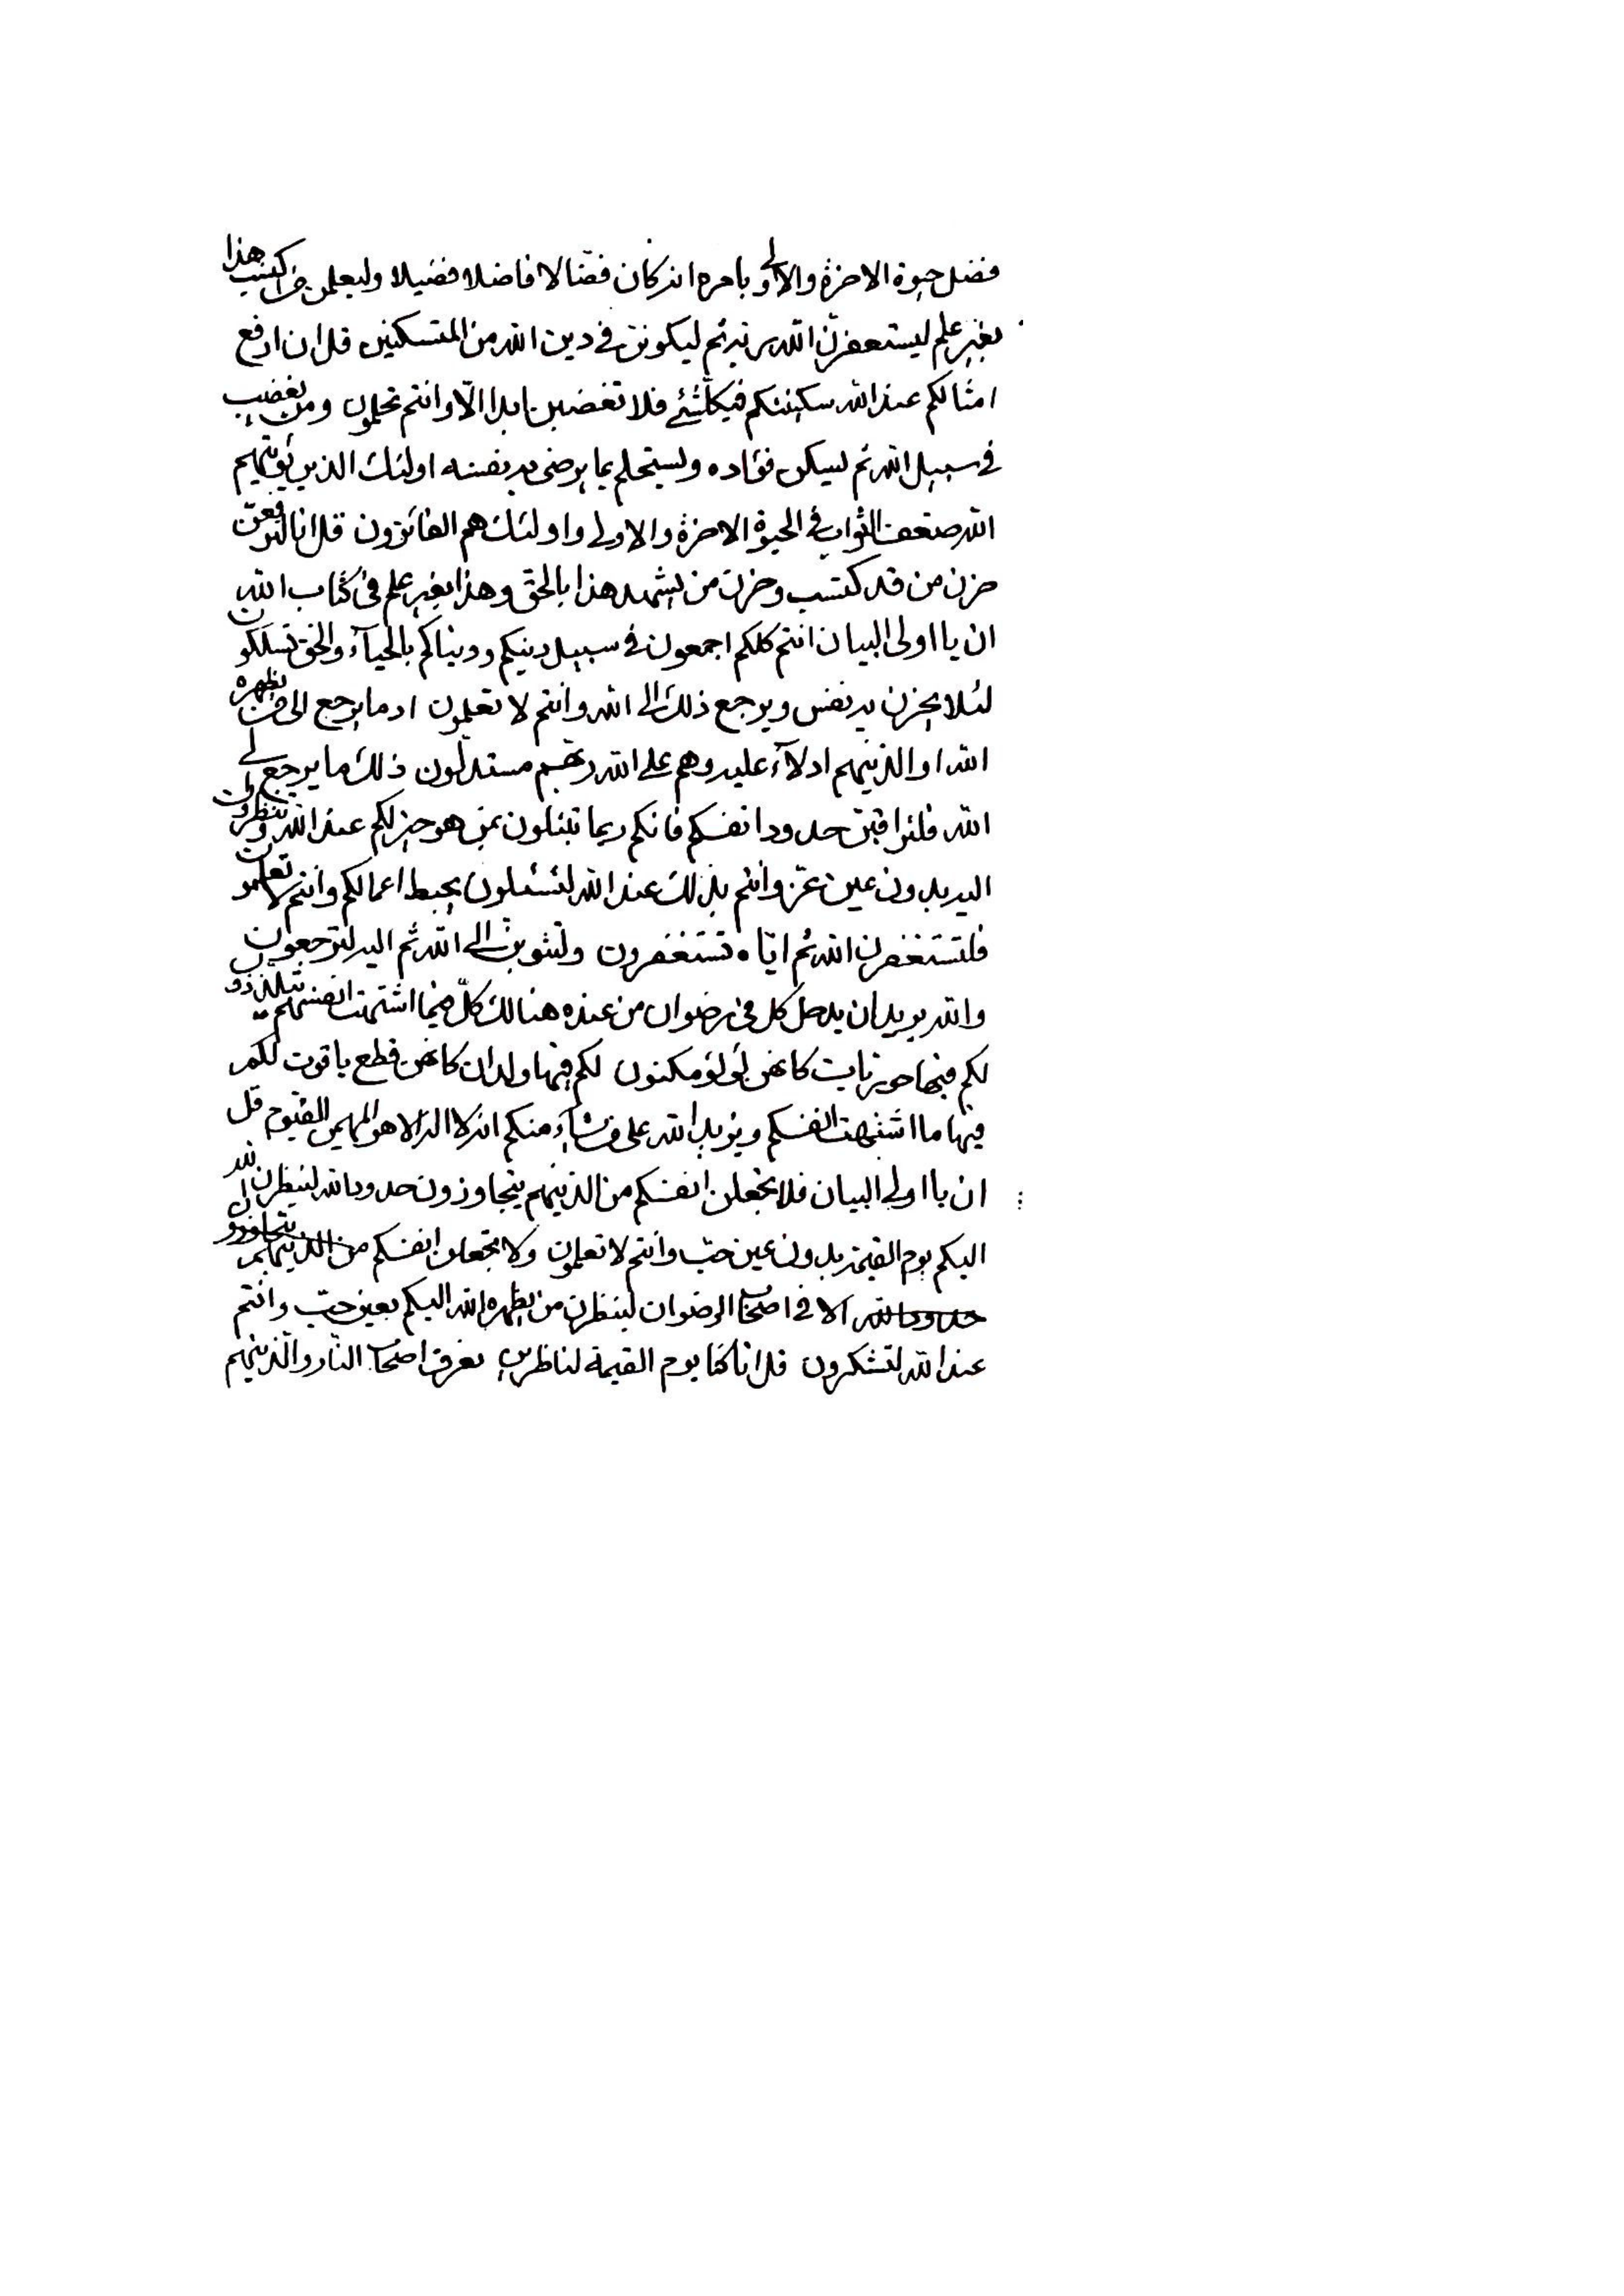 فضل حيوة الاخرة والاولى بامره انه كان فضّالا فاضلا فضيلا وليعلمن من اكتسب هذا
بغير علم ليستغفرن الله ربه ثم ليكونن في دين الله من المتسكنين قل ان ارفع
امثالكم عند الله سكينتكم فيكلشئ فلا تغضبن ابدا الّا وانتم تحلمون ومن يغضب
في سبيل الله ثم ليسكن فؤاده وليستحلم بما يرضى به نفسه اولئك الذين يؤتيهم
الله ضعف الثواب في الحيوة الاخرة والاولى واولئك هم الفائزون قل انا لنرفعن
حزن من قد كتسب وحزن من يشهد هذا بالحق وهذا بغير علم في كتاب الله
ان يا اولى البيان انتم كلكم اجمعون في سبيل دينكم ودنياكم بالحيآء والحق تسلكون
لئلا يحزن به نفس ويرجع ذلك الى الله وانتم لا تعلمون اد ما يرجع الى من يظهره
الله او الذينهم ادلآء عليه وهم على الله ربهم مستدلّون ذلك ما يرجع الى
الله فلتراقبن حدود انفسكم فانكم ربما تبتلون بمن هو خير لكم عند الله وتنظرون
اليه بدون عين عزّ وانتم بذلك عند الله لتسئلون يحبط اعمالكم وانتم لا تعلمون
فلتستغفرن الله ثم ايّاه تستغفرون ولتتوبن الى الله ثم اليه لترجعون
والله يريد ان يدخل كل في رضوان من عنده هنالك كلّ فيما اشتهت انفسهم يتلذذون
لكم فيها حوريات كانهن لؤلؤ مكنون لكم فيها ولدان كانهن قطع ياقوت لكم
فيها ما اشتهت انفسكم ويؤيد الله على من يشآء منكم انه لا اله الا هو المهيمن القيوم قل
ان يا اولى البيان فلا تجعلن انفسكم من الذينهم يتجاوزون حدود الله لينظرن الله
اليكم يوم القيمة بدون عين حبّ وانتم لا تعلمون ولا تجعلن انفسكم من الذينهم يتجاوزون
حدود الله الا في اصحاب الرضوان لينظرن من يظهره الله اليكم بعين حبّ وانتم
عند الله لتشكرون قل انا كنا يوم القيمة لناظرين نعرف اصحاب النار والذينهم